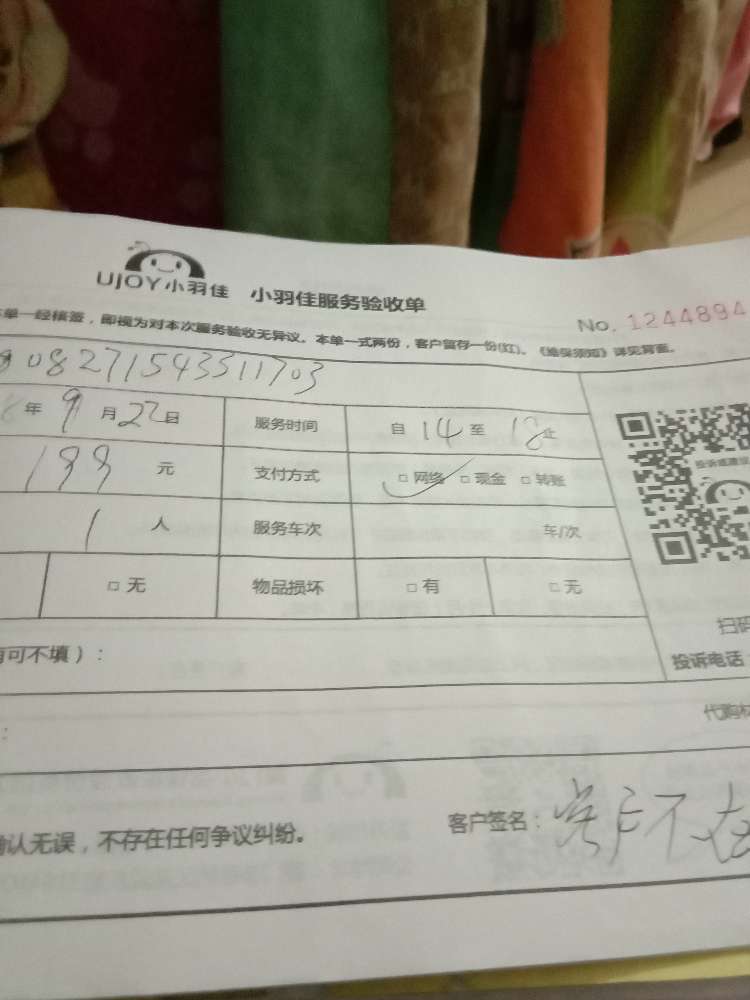 UJOY小羽佳 小羽佳服务验收单
No. 1244894
本单一经核签，即视为对本次服务验收无异议。本单一式两份，客户留存一份(红)。《验保须知》详见背面。
08271543511703
8年 9月 22日 服务时间 自 14 至 18 止
199 元 支付方式 □ 网络 □ 现金 □ 转账
1 人 服务车次 车/次
□ 无 物品损坏 □ 有 □ 无
扫码
有可不填）：
投诉电话：
代购材
：
确认无误，不存在任何争议纠纷。 客户签名： 客户不在